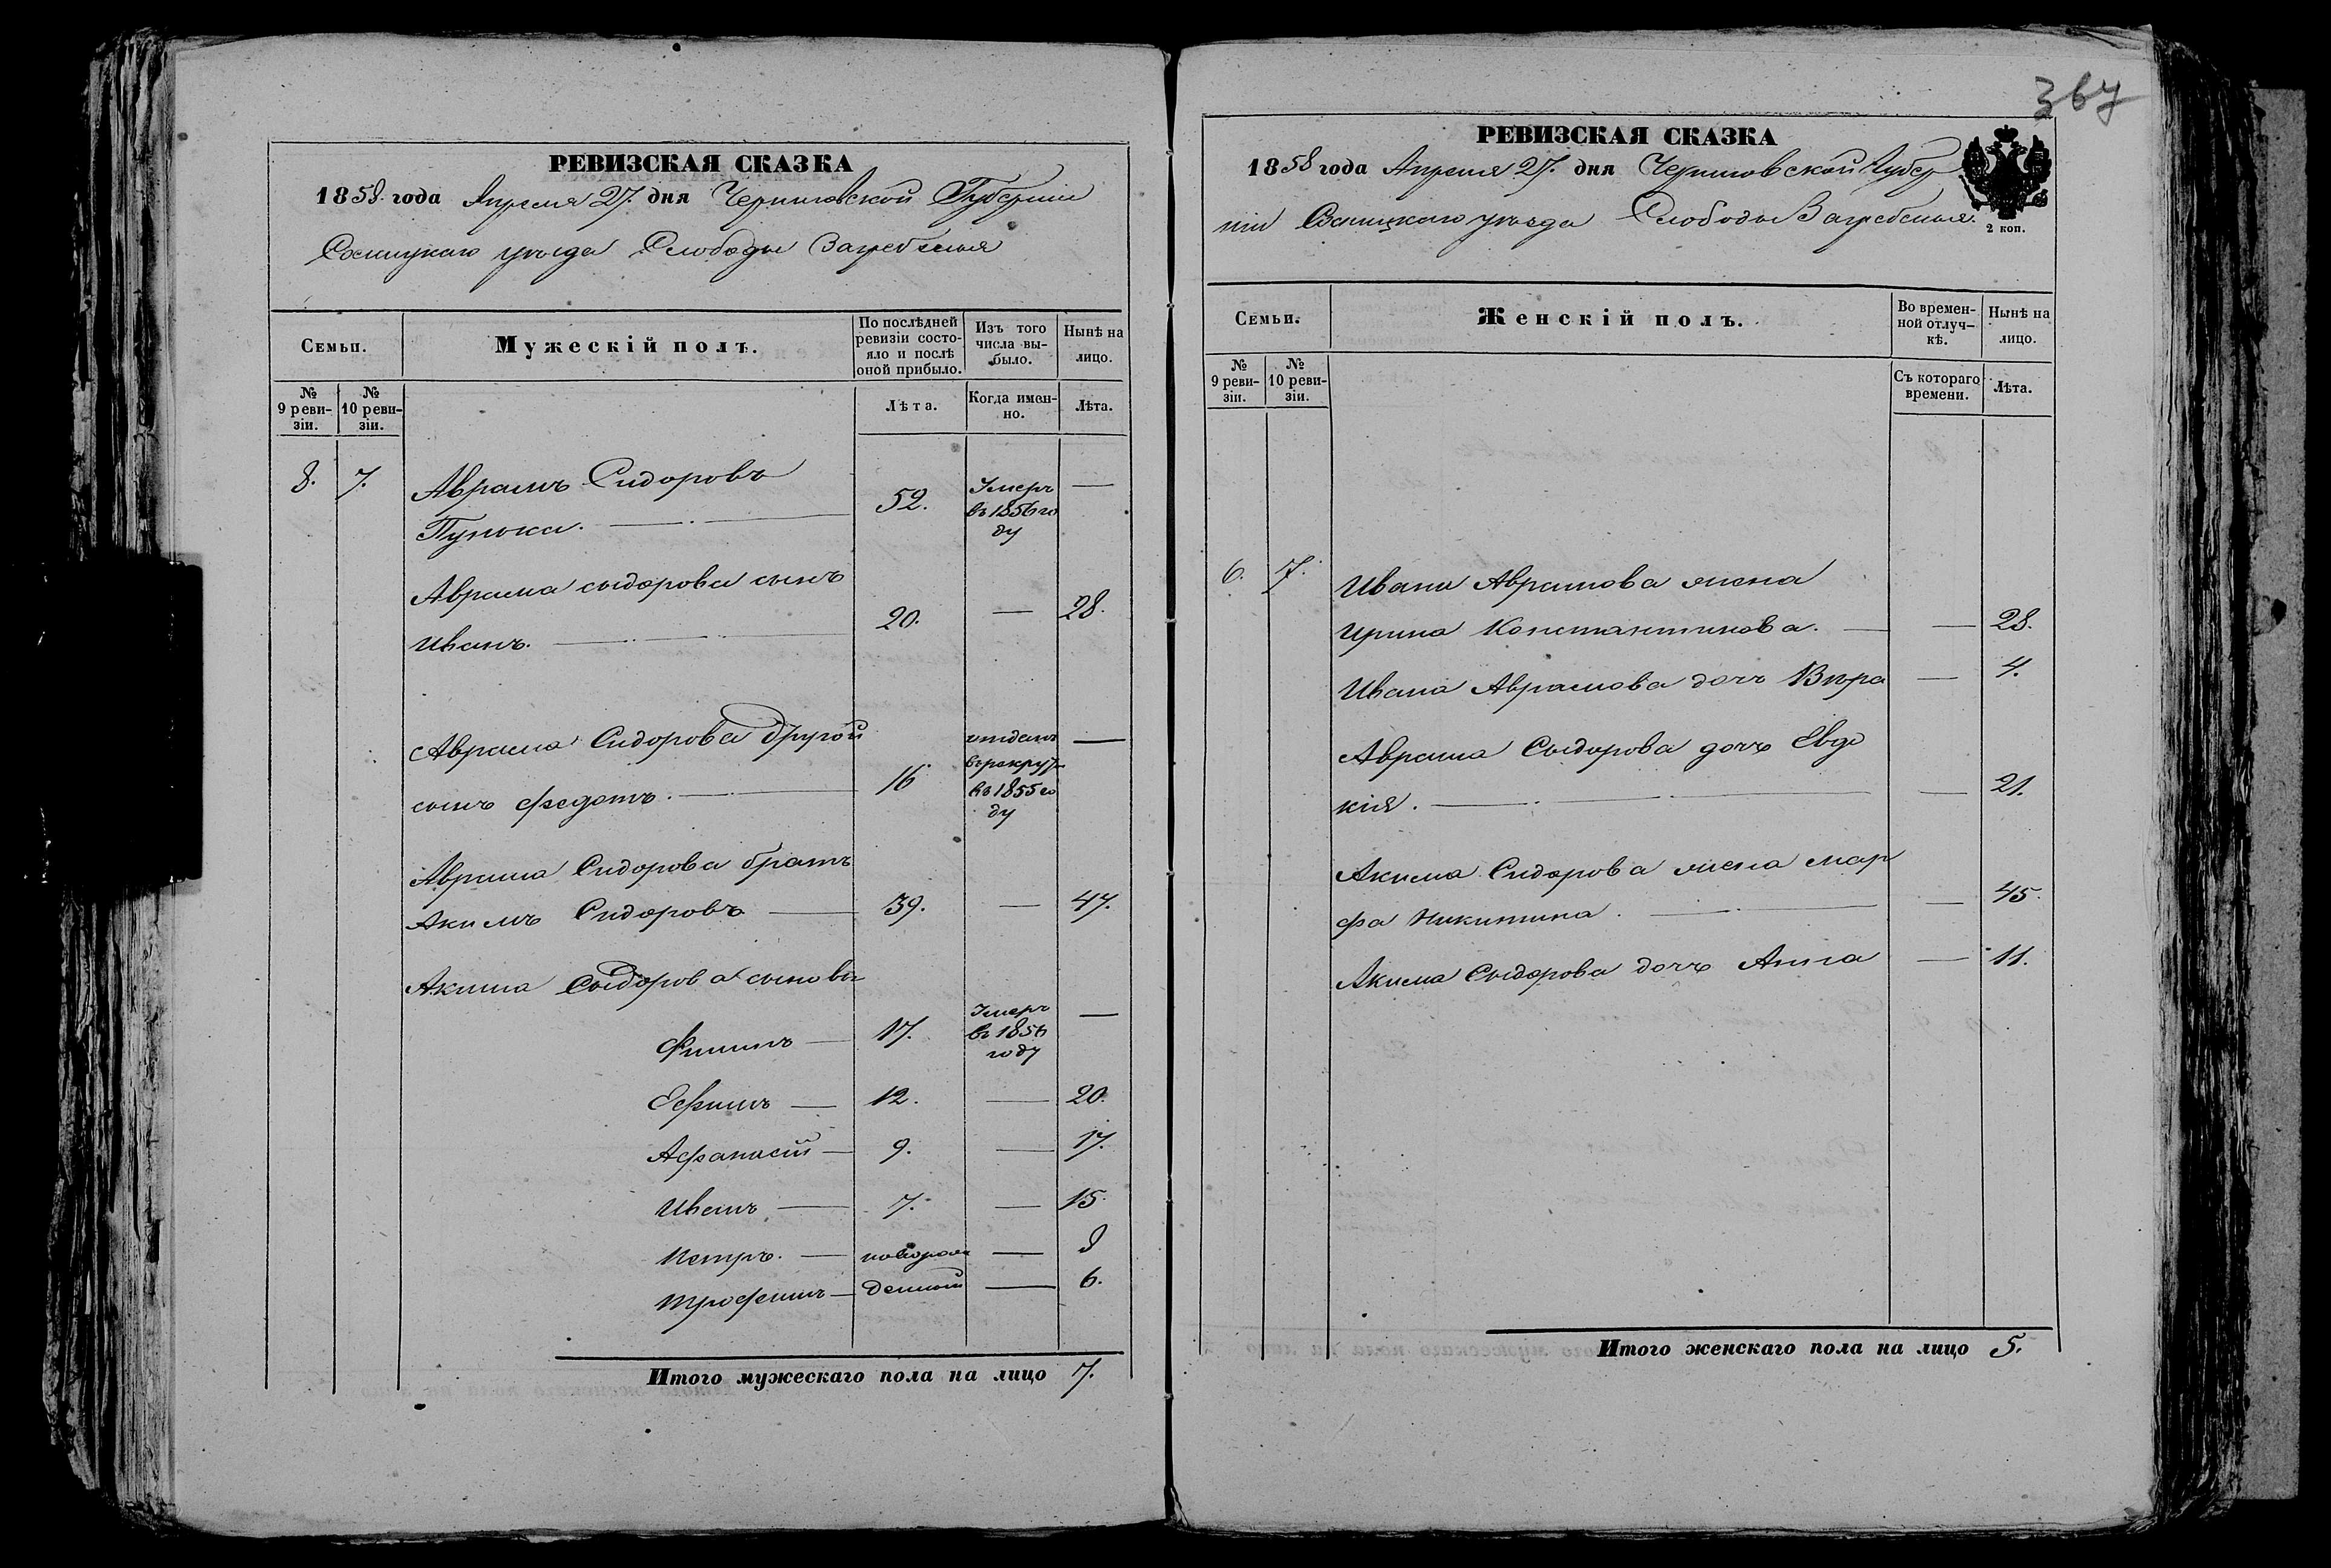 367
РЕВИЗСКАЯ СКАЗКА
1858 года Апреля 27. дня Черниговской Губерніи
Сосницкаго уѣзда Слободы Загребелья
Семьи.
Мужескій полъ.
По послѣдней ревизіи состояло и послѣ оной прибыло.
Изъ того числа выбыло.
Нынѣ на лицо.
№ 9 ревизіи.
№ 10 ревизіи.
Лѣта.
Когда именно.
Лѣта.
8. 7. Аврамъ Сидоровъ
Пунька. 52. Умеръ въ 1856 году —
Аврама сыдорова сынъ
Иванъ. 20. — 28.
Аврама Сидорова другой
сынъ Федотъ. 16 отданъ въ рекруты въ 1855 году —
Аврама Сидорова братъ
Акимъ Сидоровъ — 39. — 47.
Акима Сыдорова сыновья
Филипъ — 17. Умеръ въ 1856 году —
Ефимъ — 12. — 20.
Афанасій — 9. — 17.
Иванъ — 7. — 15.
Петръ. — новорож — 8
Трофимъ — денной — 6.
Итого мужескаго пола на лицо 7.
РЕВИЗСКАЯ СКАЗКА
1858 года Апреля 27. дня Черниговской Губер
ніи Сосницкаго уѣзда Слободы Загребелья.
2 коп.
Семьи.
Женскій полъ.
Во временной отлучкѣ.
Нынѣ на лицо.
№ 9 ревизіи.
№ 10 ревизіи.
Съ котораго времени.
Лѣта.
6. 7. Ивана Аврамова жена
Ирина Константинова. — — 28.
Ивана Аврамова дочъ Вѣра — 4.
Аврама Сыдорова дочъ Евдо
кія. — 21.
Акима Сидорова жена Мар
фа Никитина. — 45.
Акима Сыдорова дочъ Анна — 11.
Итого женскаго пола на лицо 5.